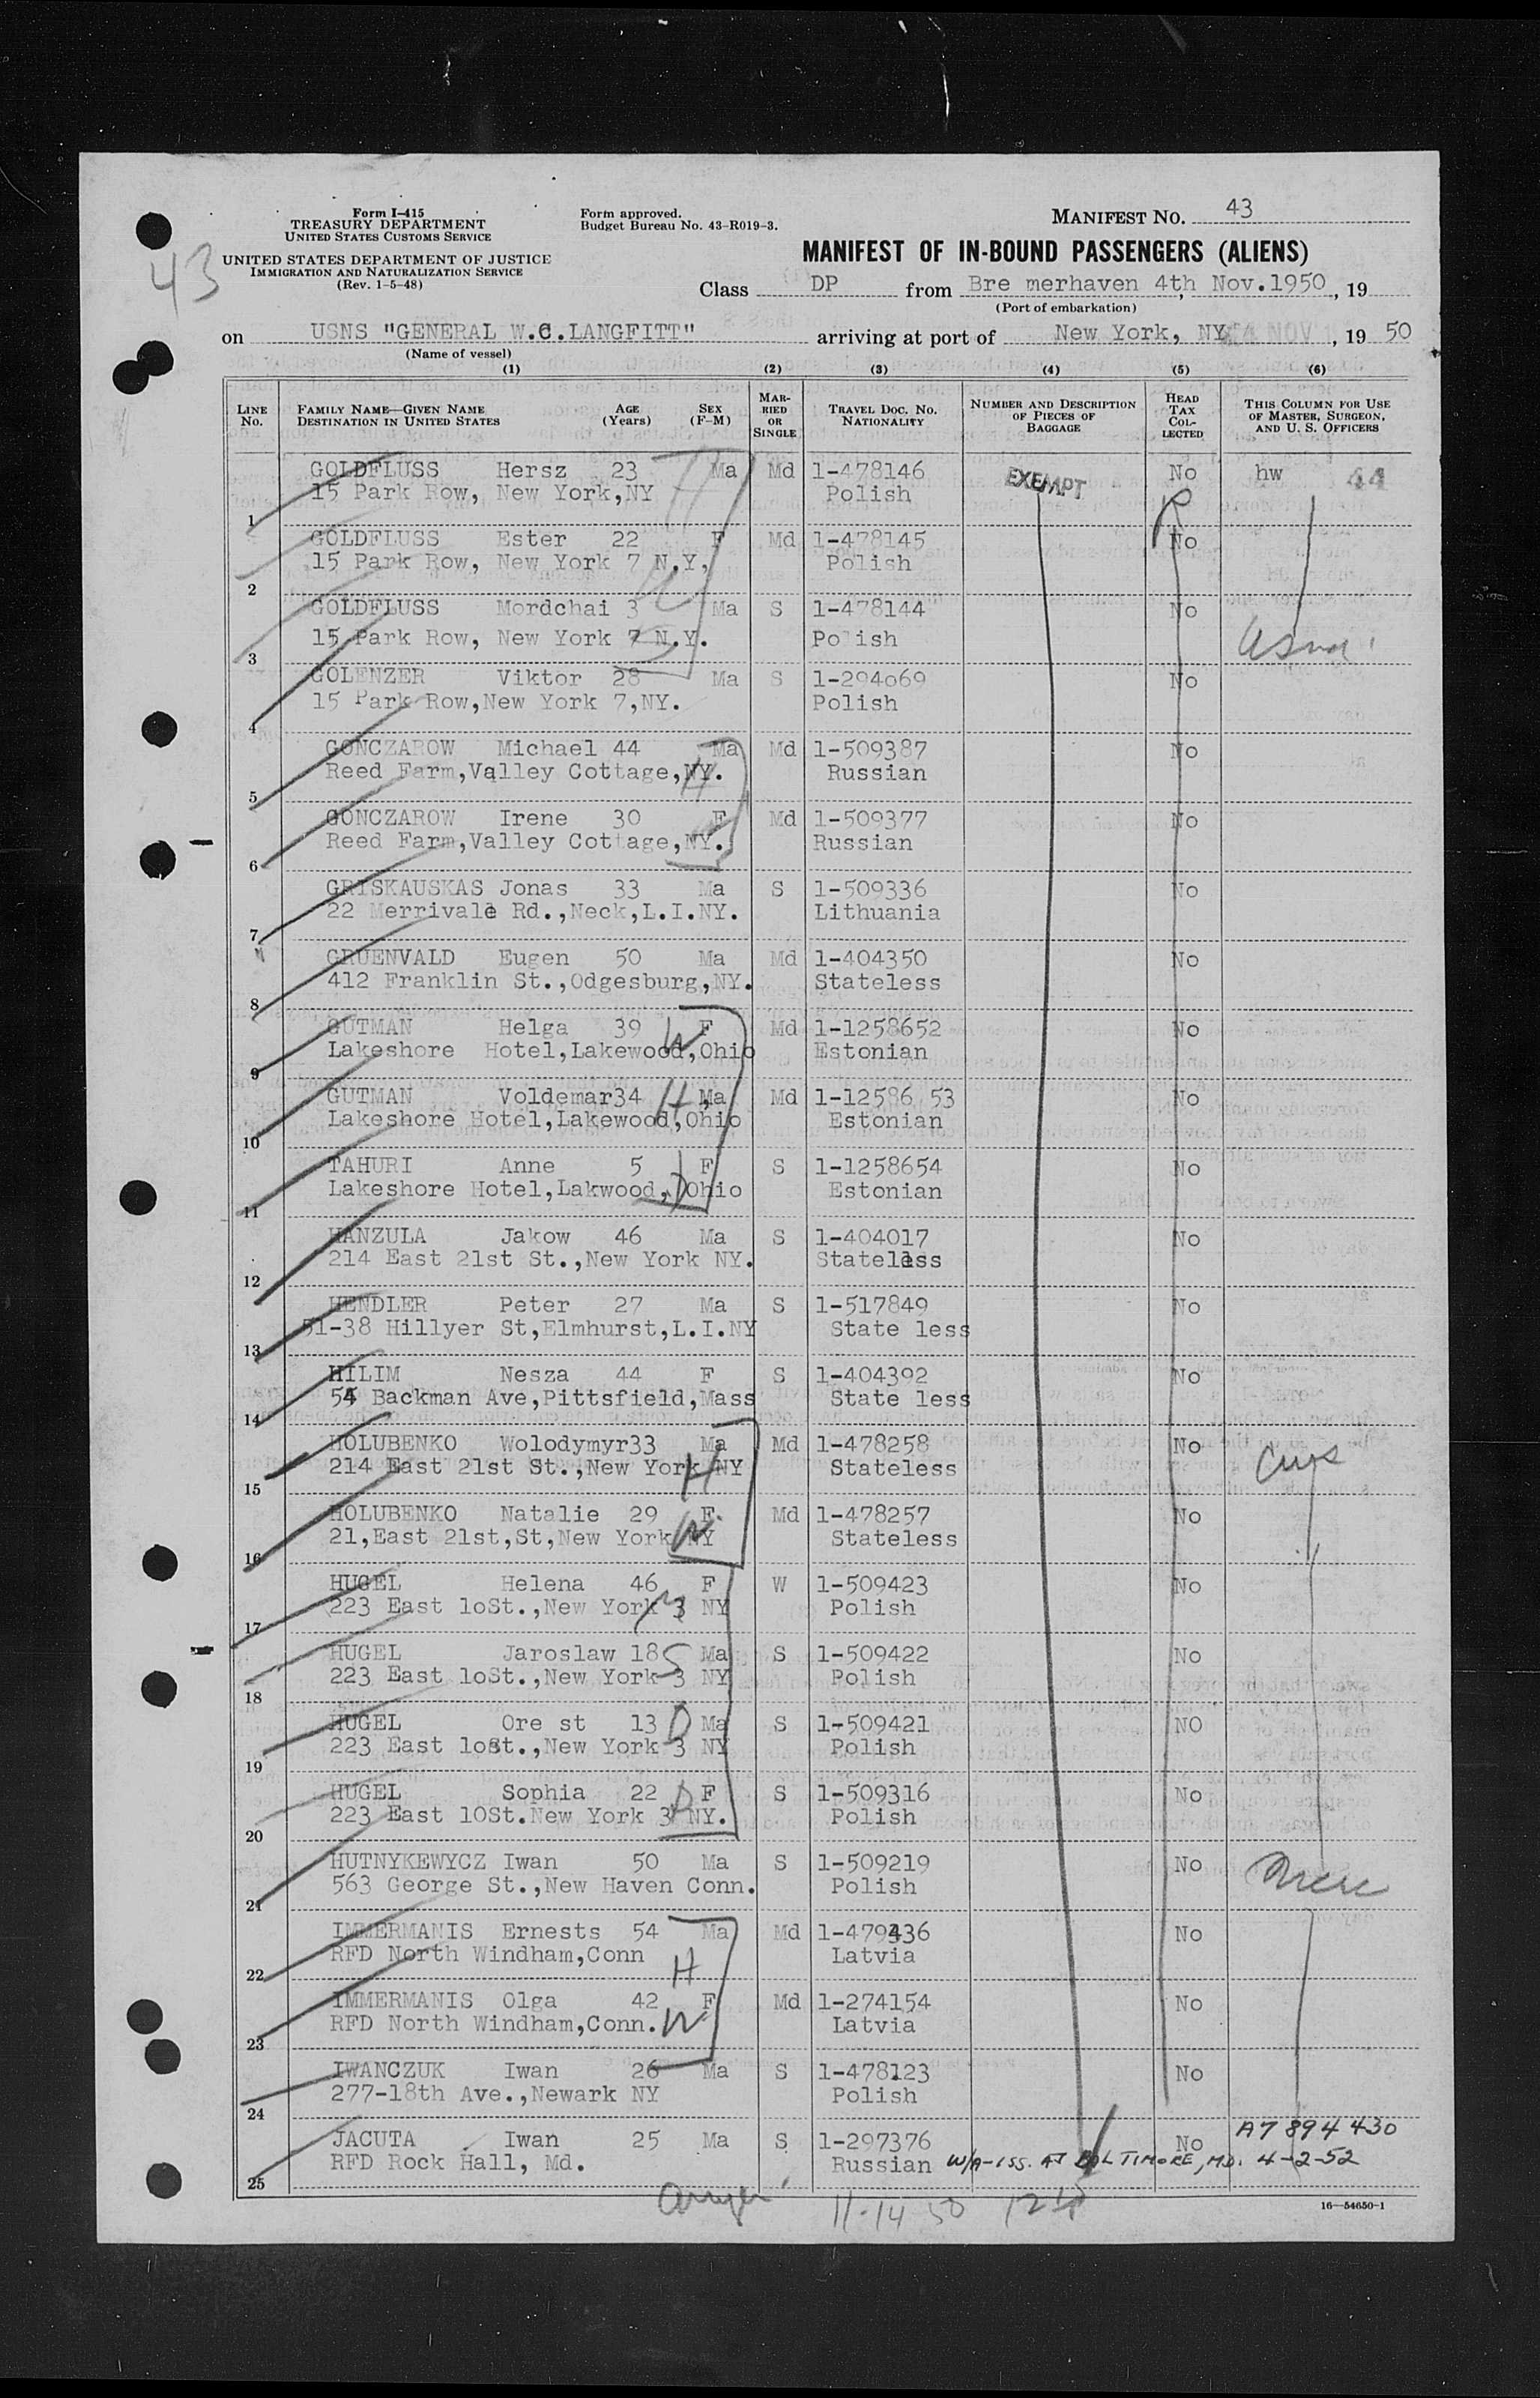 Form I-415
TREASURY DEPARTMENT
UNITED STATES CUSTOMS SERVICE
UNITED STATES DEPARTMENT OF JUSTICE
IMMIGRATION AND NATURALIZATION SERVICE
(Rev. 1-5-48)
Form approved.
Budget Bureau No. 43-R019-3.
MANIFEST NO. 43
43
MANIFEST OF IN-BOUND PASSENGERS (ALIENS)
Class DP from Bre merhaven 4th, Nov.1950, 19
(Port of embarkation)
on USNS "GENERAL W.C.LANGFITT" arriving at port of New York, NY 14 NOV, 19 50
(Name of vessel)
(1) (2) (3) (4) (5) (6)
LINE No. FAMILY NAME—GIVEN NAME DESTINATION IN UNITED STATES AGE (Years) SEX (F-M) MARRIED OR SINGLE TRAVEL DOC. NO. NATIONALITY NUMBER AND DESCRIPTION OF PIECES OF BAGGAGE HEAD TAX COLLECTED THIS COLUMN FOR USE OF MASTER, SURGEON, AND U. S. OFFICERS
GOLDFLUSS Hersz 23 Ma Md 1-478146 EXEMPT No hw 44
15 Park Row, New York,NY Polish
1
GOLDFLUSS Ester 22 F Md 1-478145 No
15 Park Row, New York 7 N.Y, Polish
2
GOLDFLUSS Mordchai 3 Ma S 1-478144 No
15 Park Row, New York 7 N.Y. Polish
3
GOLENZER Viktor 28 Ma S 1-294069 No
15 Park Row,New York 7,NY. Polish
4
GONCZAROW Michael 44 Ma Md 1-509387 No
Reed Farm,Valley Cottage,NY. H Russian
5
GONCZAROW Irene 30 F Md 1-509377 No
Reed Farm,Valley Cottage,NY. Russian
6
GRISKAUSKAS Jonas 33 Ma S 1-509336 No
22 Merrivale Rd.,Neck,L.I.NY. Lithuania
7
GRUENVALD Eugen 50 Ma Md 1-404350 No
412 Franklin St.,Odgesburg,NY. Stateless
8
GUTMAN Helga 39 W F Md 1-1258652 No
Lakeshore Hotel,Lakewood,Ohio Estonian
9
GUTMAN Voldemar34 H Ma Md 1-12586 53 No
Lakeshore Hotel,Lakewood,Ohio Estonian
10
TAHURI Anne 5 F S 1-1258654 No
Lakeshore Hotel,Lakwood, D Ohio Estonian
11
HANZULA Jakow 46 Ma S 1-404017 No
214 East 21st St.,New York NY. Stateless
12
HENDLER Peter 27 Ma S 1-517849 No
51-38 Hillyer St,Elmhurst,L.I.NY State less
13
HILIM Nesza 44 F S 1-404392 No
54 Backman Ave,Pittsfield,Mass State less
14
HOLUBENKO Wolodymyr33 Ma Md 1-478258 No
214 East 21st St.,New York NY H Stateless
15
HOLUBENKO Natalie 29 F Md 1-478257 No
21,East 21st,St,New York NY W Stateless
16
HUGEL Helena 46 F W 1-509423 No
223 East loSt.,New York 3 NY M Polish
17
HUGEL Jaroslaw 18 S Ma S 1-509422 No
223 East loSt.,New York 3 NY Polish
18
HUGEL Ore st 13 D Ma S 1-509421 NO
223 East loSt.,New York 3 NY Polish
19
HUGEL Sophia 22 D F S 1-509316 No
223 East 10St.New York 3 NY. Polish
20
HUTNYKEWYCZ Iwan 50 Ma S 1-509219 No
563 George St.,New Haven Conn. Polish
21
IMMERMANIS Ernests 54 Ma Md 1-479436 No
RFD North Windham,Conn H Latvia
22
IMMERMANIS Olga 42 F Md 1-274154 No
RFD North Windham,Conn. W Latvia
23
IWANCZUK Iwan 26 Ma S 1-478123 No
277-18th Ave.,Newark NY Polish
24
JACUTA Iwan 25 Ma S 1-297376 No A7 894 430
RFD Rock Hall, Md. Russian W/A-ISS. AT BALTIMORE, MD. 4-2-52
25
11-14 50
16—54650-1